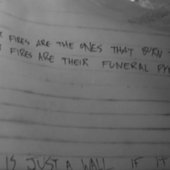 FIRES ARE THE ONES THAT BURN
FIRES ARE THEIR FUNERAL
IS JUST A WALL IF IT